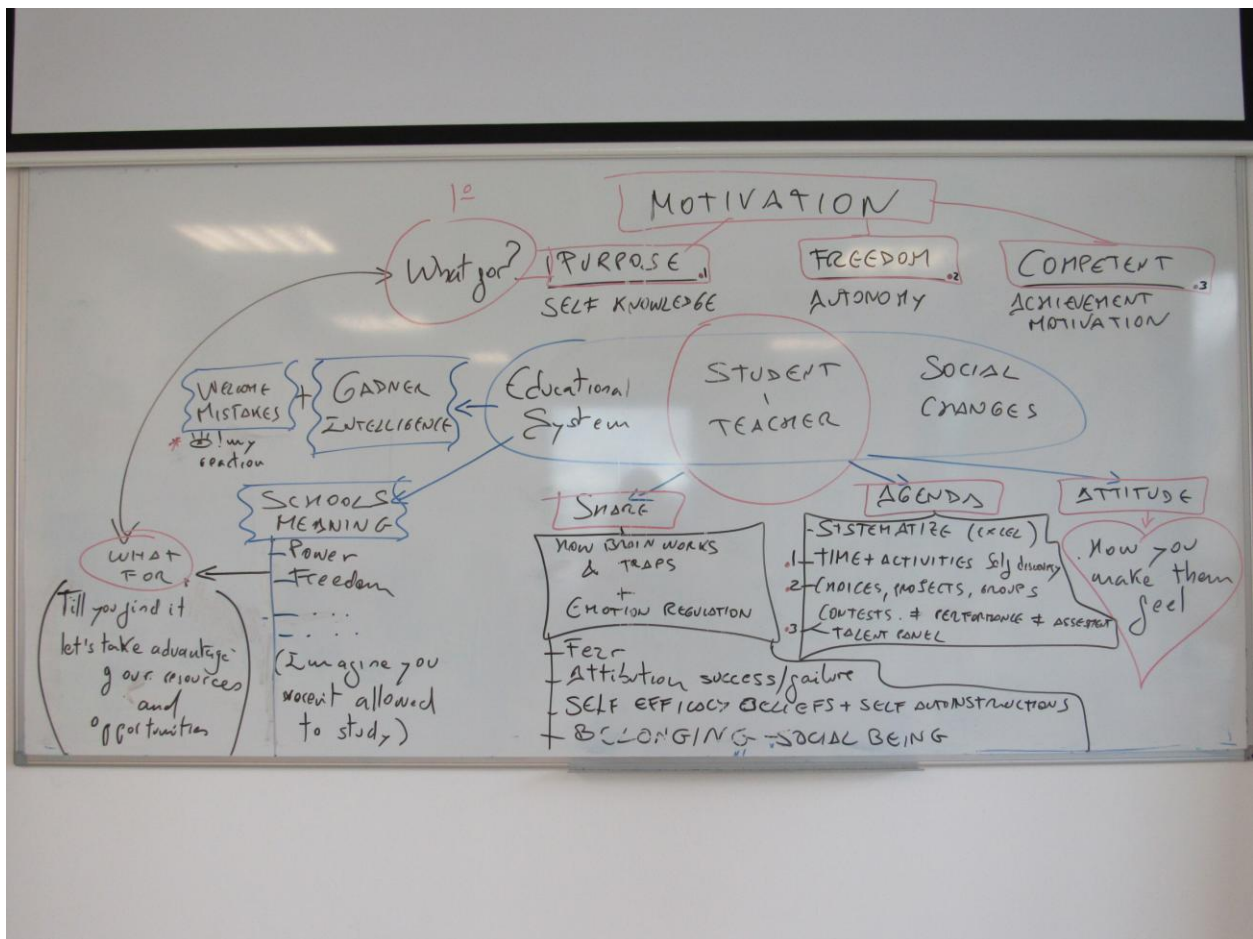 1º
MOTIVATION
What for?
PURPOSE .1
SELF KNOWLEDGE
FREEDOM .2
AUTONOMY
COMPETENT .3
ACHIEVEMENT
MOTIVATION
WELCOME
MISTAKES
+
GADNER
INTELLIGENCE
* ! my
reaction
Educational
System
STUDENT
TEACHER
SOCIAL
CHANGES
SCHOOLS
MEANING
- Power
- Freedom
- . . . .
- . . . .
(Imagine you
weren't allowed
to study)
WHAT
FOR
Till you find it
let's take advantage
of our resources
and
opportunities
SHARE
HOW BRAIN WORKS
& TRAPS
+
EMOTION REGULATION
- Fear
- Attribution success/failure
- SELF EFFICACY BELIEFS + SELF AUTOINSTRUCTIONS
- BELONGING - SOCIAL BEING
AGENDA
- SISTEMATIZE (EXCEL)
.1 - TIME + ACTIVITIES Self discovery
.2 - CHOICES, PROJECTS, GROUPS
CONTESTS. ≠ PERFORMANCE ≠
.3 TALENT PANEL
ATTITUDE
. How you
make them
feel